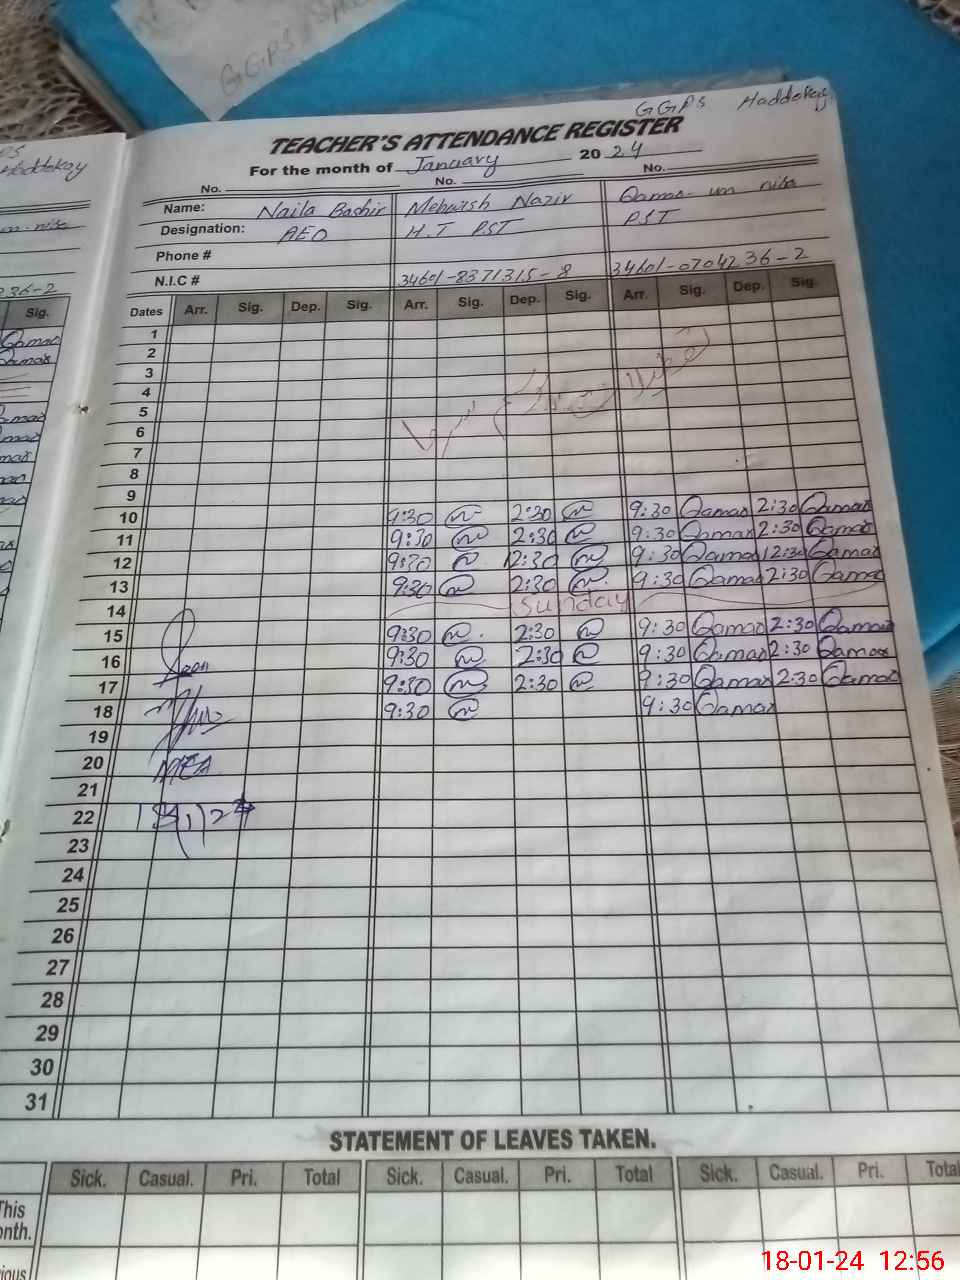 GGPS
GGPS Haddokay
TEACHER'S ATTENDANCE REGISTER
For the month of January 2024
No. No. No.
Name: Naila Bashir Mehwish Nazir Qamar un nisa
Designation: AEO H.T PST PST
Phone #
N.I.C # 34601-8371315-8 34601-0704236-2
Dates Arr. Sig. Dep. Sig. Arr. Sig. Dep. Sig. Arr. Sig. Dep. Sig.
1
2
3
4
5
6
7
8
9
10 9:30 2:30 9:30 Qamar 2:30 Qamar
11 9:30 2:30 9:30 Qamar 2:30 Qamar
12 9:30 12:30 9:30 Qamar 12:30 Qamar
13 9:30 2:30 9:30 Qamar 2:30 Qamar
14 Sunday
15 9:30 2:30 9:30 Qamar 2:30 Qamar
16 9:30 2:30 9:30 Qamar 2:30 Qamar
17 9:30 2:30 9:30 Qamar 2:30 Qamar
18 9:30 9:30 Qamar
19
20 MEA
21
22
23
24
25
26
27
28
29
30
31
STATEMENT OF LEAVES TAKEN.
Sick. Casual. Pri. Total Sick. Casual. Pri. Total Sick. Casual. Pri. Total
This
onth.
ious
18-01-24 12:56